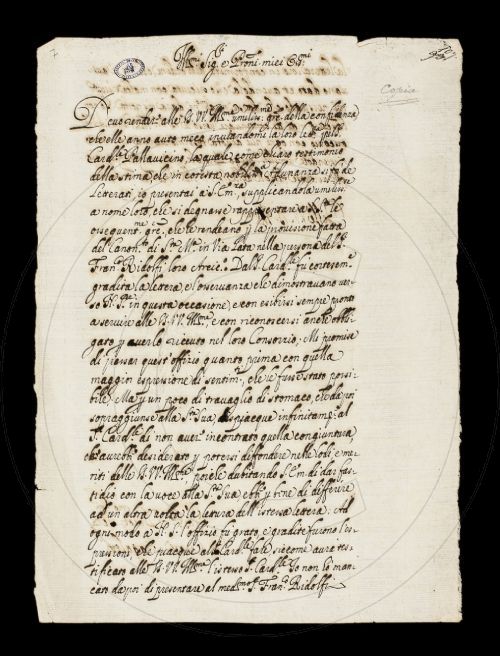 Ill.mi Sig.ri e Proni. miei Oss.mi
Copia
Devo render alle S.V. Ill.me umiliss.e gre. della confidenza
che elle anno auto meco inviandomi la loro lettera per il S.r
Card.le Pallavicino, la quale come chiaro testimonio
della stima che in cotesta nobiliss.a adunanza si fa de
Letterati, io presentai a S. Em.za, supplicandola umiliss.te
a nome loro, che si degnasse rappresentare a N. S.re le
ossequent.me gre. che le rendeano p la provisione fatta
del Canon.to di S.ta M.a in Via Lata nella persona del S.r
Fran.co Ridolfi loro Arcic.o Dal S. Card.le fu cortesem.te
gradita la lettera, e l'osservanza che dimostravano ver=
so N. S.re in questa occasione, e con esibirsi sempre pronto
a servire alle S. V. Ill.me, e con riconoscersi anche obbli=
gato p averlo ricevuto nel loro Consorzio, Mi promise
di passar quest'offizio quanto prima con quella
maggior espressione di sentim.ti che le fusse stato possi=
bile. Ma p un poco di travaglio di stomaco, che da poi
sopraggiunse alla S.tà Sua, dispiacque infinitam.te al
S. Card.le di non auer incontrato quella congiuntura,
che aurebbe desiderato p potersi diffondere nelle lodi e me=
riti delle S. V. Ill.me, poiche dubitando S. Em. di dar fas=
tidio con la voce alla S.tà Sua ebbe p bene di differire
ad un altra volta la lettura dell'istessa lettera. Ad
ogni modo a N. S. l'offizio fu grato, e gradite furono l'es=
pressioni, che piacque al S. Card.le farle, siccome aurà tes=
tificato alle S. V. Ill.me l'istesso S. Card.le Io non ho man=
cato da poi di presentare al med.mo S. Fran.co Ridolfi